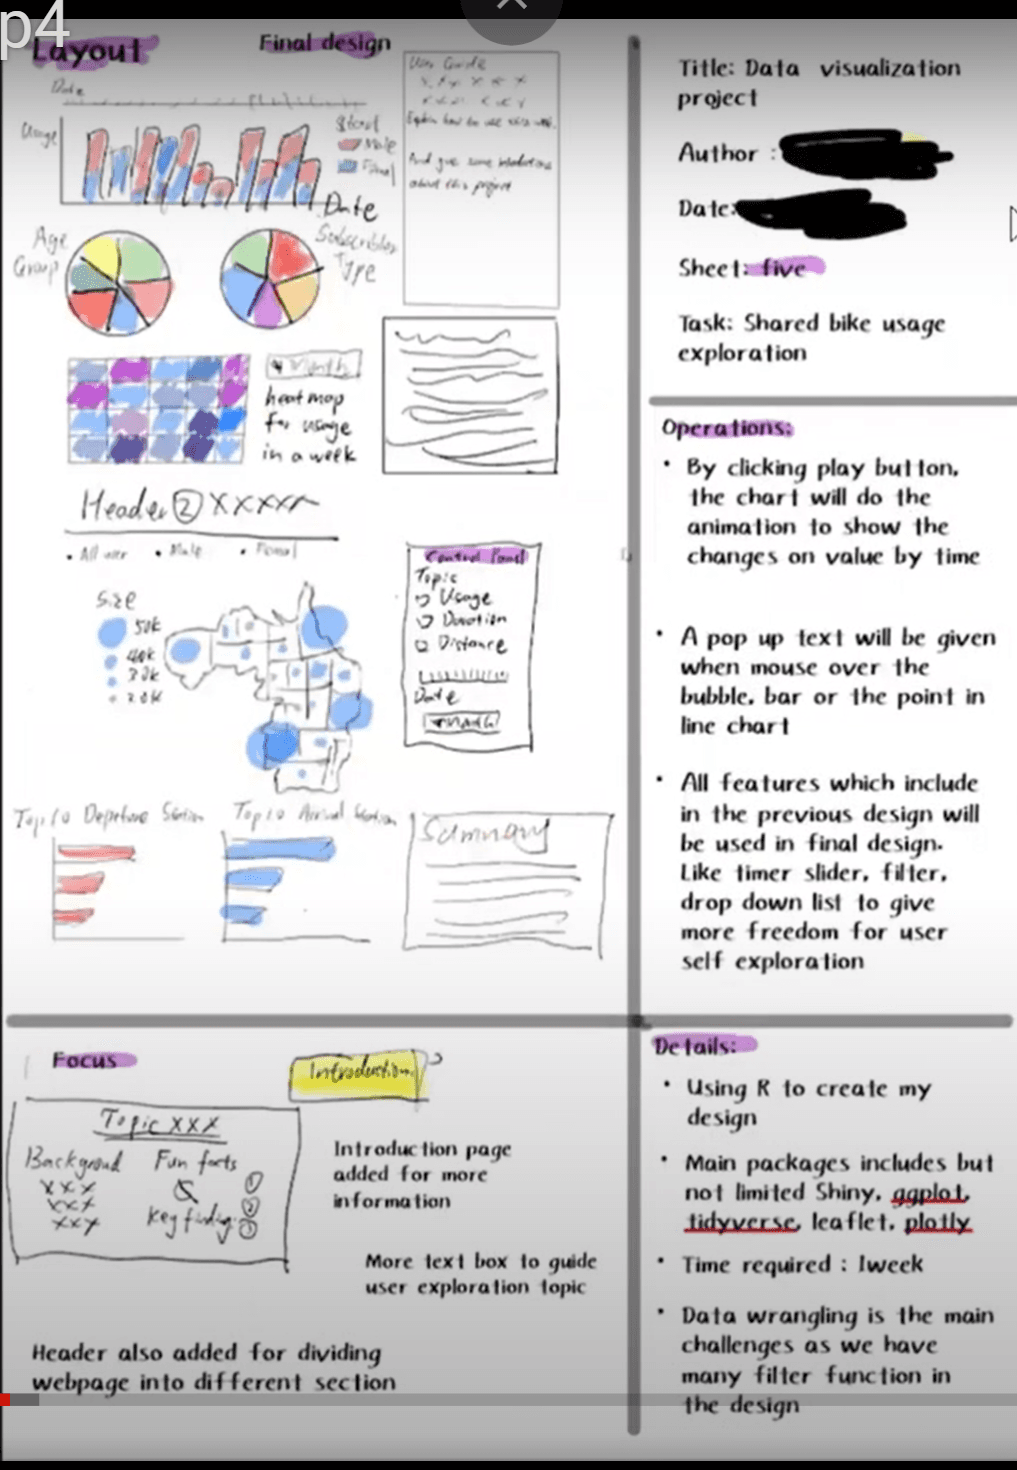 p4
Layout
Final design
Date
Usage
Male
Date
Age
Group
Subscriber
Type
User Guide
x x x x x x
Explain how to use this web.
And give some introductions
about this project
Month
heat map
for usage
in a week
Header ② XXXXX
• All user • Male • Femal
Size
50k
40k
30k
20k
Control Panel
Topic
Usage
Duration
Distance
Date
Month
Top 10 Departure Station
Top 10 Arrival Station
Summary
Title: Data visualization
project
Author :
Date:
Sheet: five
Task: Shared bike usage
exploration
Operations:
• By clicking play button,
the chart will do the
animation to show the
changes on value by time
• A pop up text will be given
when mouse over the
bubble, bar or the point in
line chart
• All features which include
in the previous design will
be used in final design.
Like timer slider, filter,
drop down list to give
more freedom for user
self exploration
Focus
Introduction
Topic XXX
Background
XXX
XXX
XXY
Fun facts
&
Key finding:
①
②
③
Introduction page
added for more
information
More text box to guide
user exploration topic
Header also added for dividing
webpage into different section
Details:
• Using R to create my
design
• Main packages includes but
not limited Shiny, ggplot,
tidyverse, leaflet, plotly
• Time required : 1week
• Data wrangling is the main
challenges as we have
many filter function in
the design